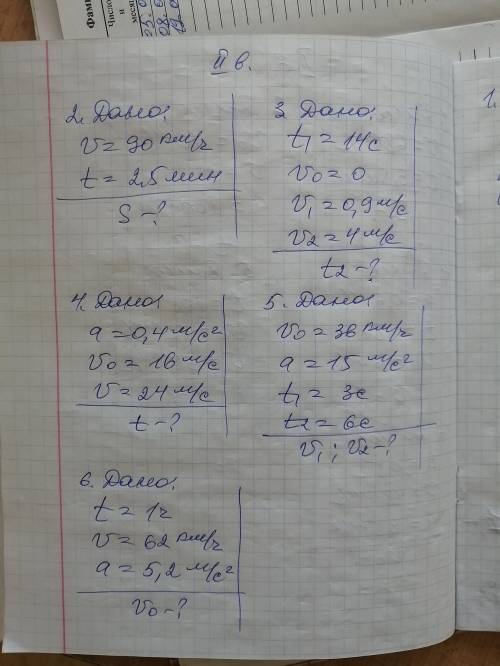 Фам
Число
и
меся
II в.
2. Дано:
v = 90 км/ч
t = 2,5 мин
S - ?
3. Дано:
t₁ = 14с
v₀ = 0
v₁ = 0,9 м/с
v₂ = 4 м/с
t₂ - ?
4. Дано:
a = 0,4 м/с²
v₀ = 16 м/с
v = 24 м/с
t - ?
5. Дано:
v₀ = 36 км/ч
a = 15 м/с²
t₁ = 3с
t₂ = 6с
v₁; v₂ - ?
6. Дано:
t = 1ч
v = 62 км/ч
a = 5,2 м/с²
v₀ - ?
1.